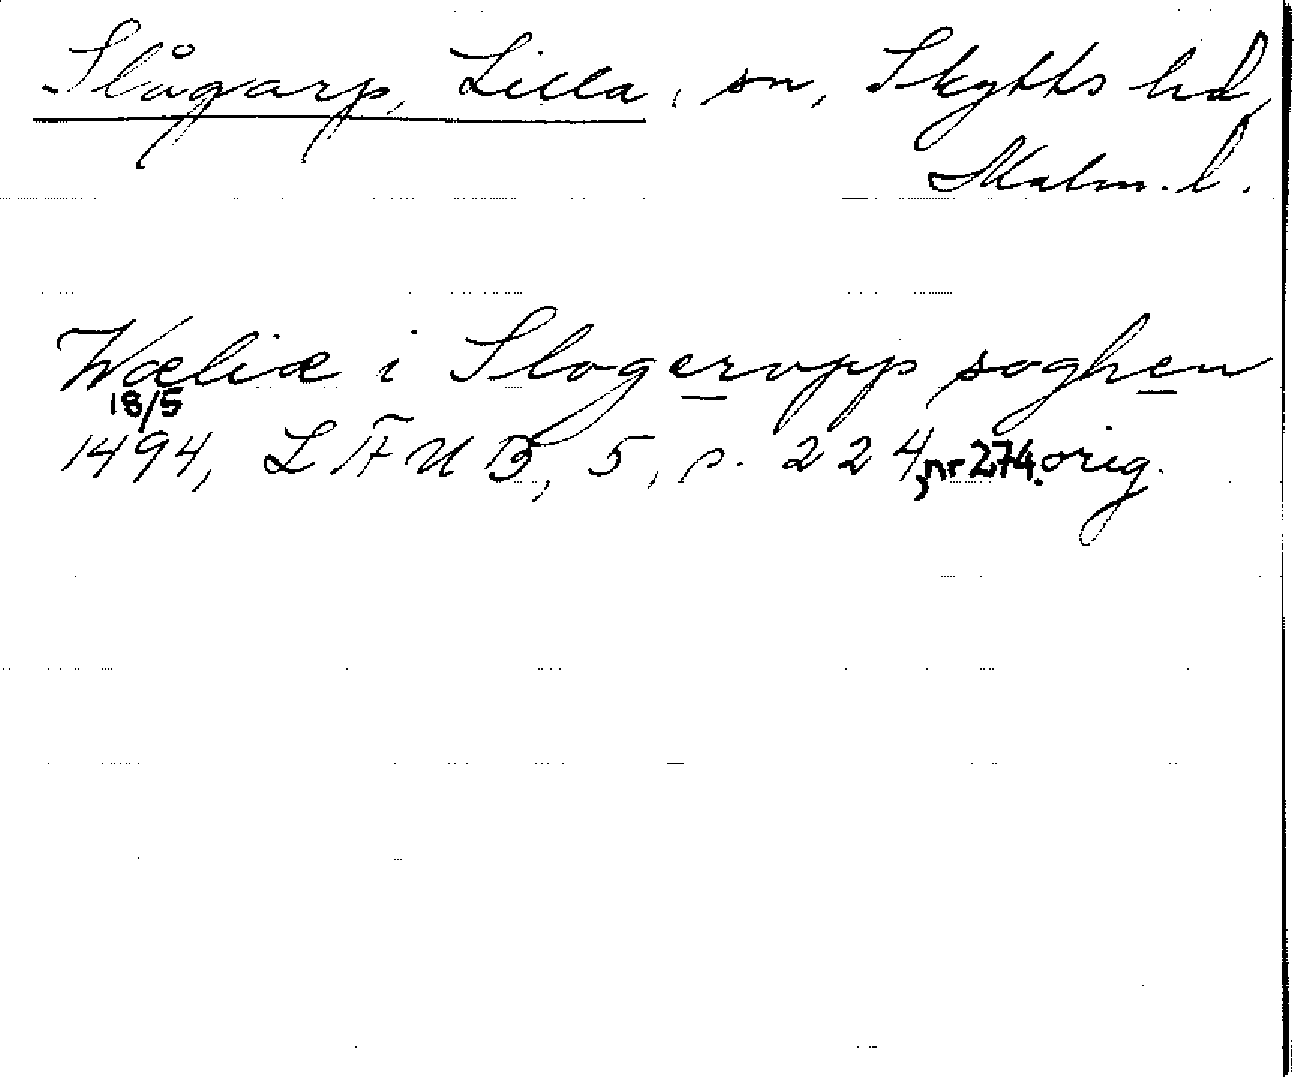 Slågarp, Lilla, sn, Skytts hd,
Malm. l.
Wæliæ i Slogeropp soghen
18/5
1494, LÄUB, 5, s. 224, nr 274. orig.